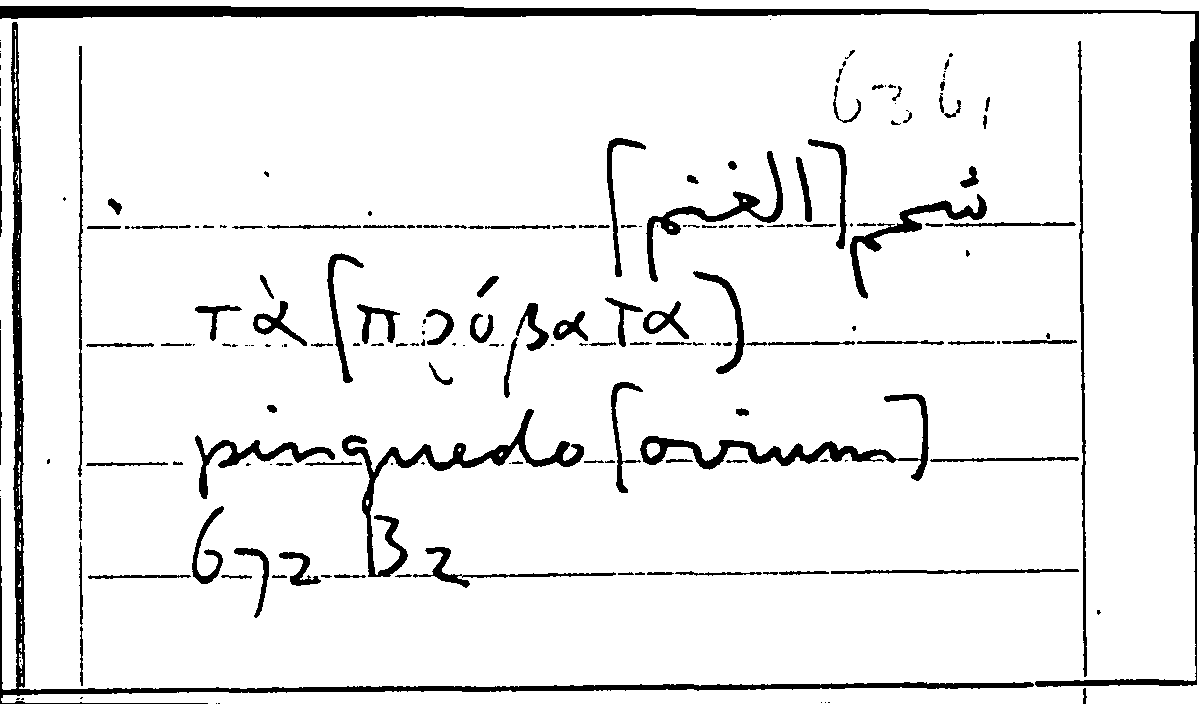 636,
شحم [الغنم]
τὰ [πρόβατα]
pinguedo [ovium]
672 B2